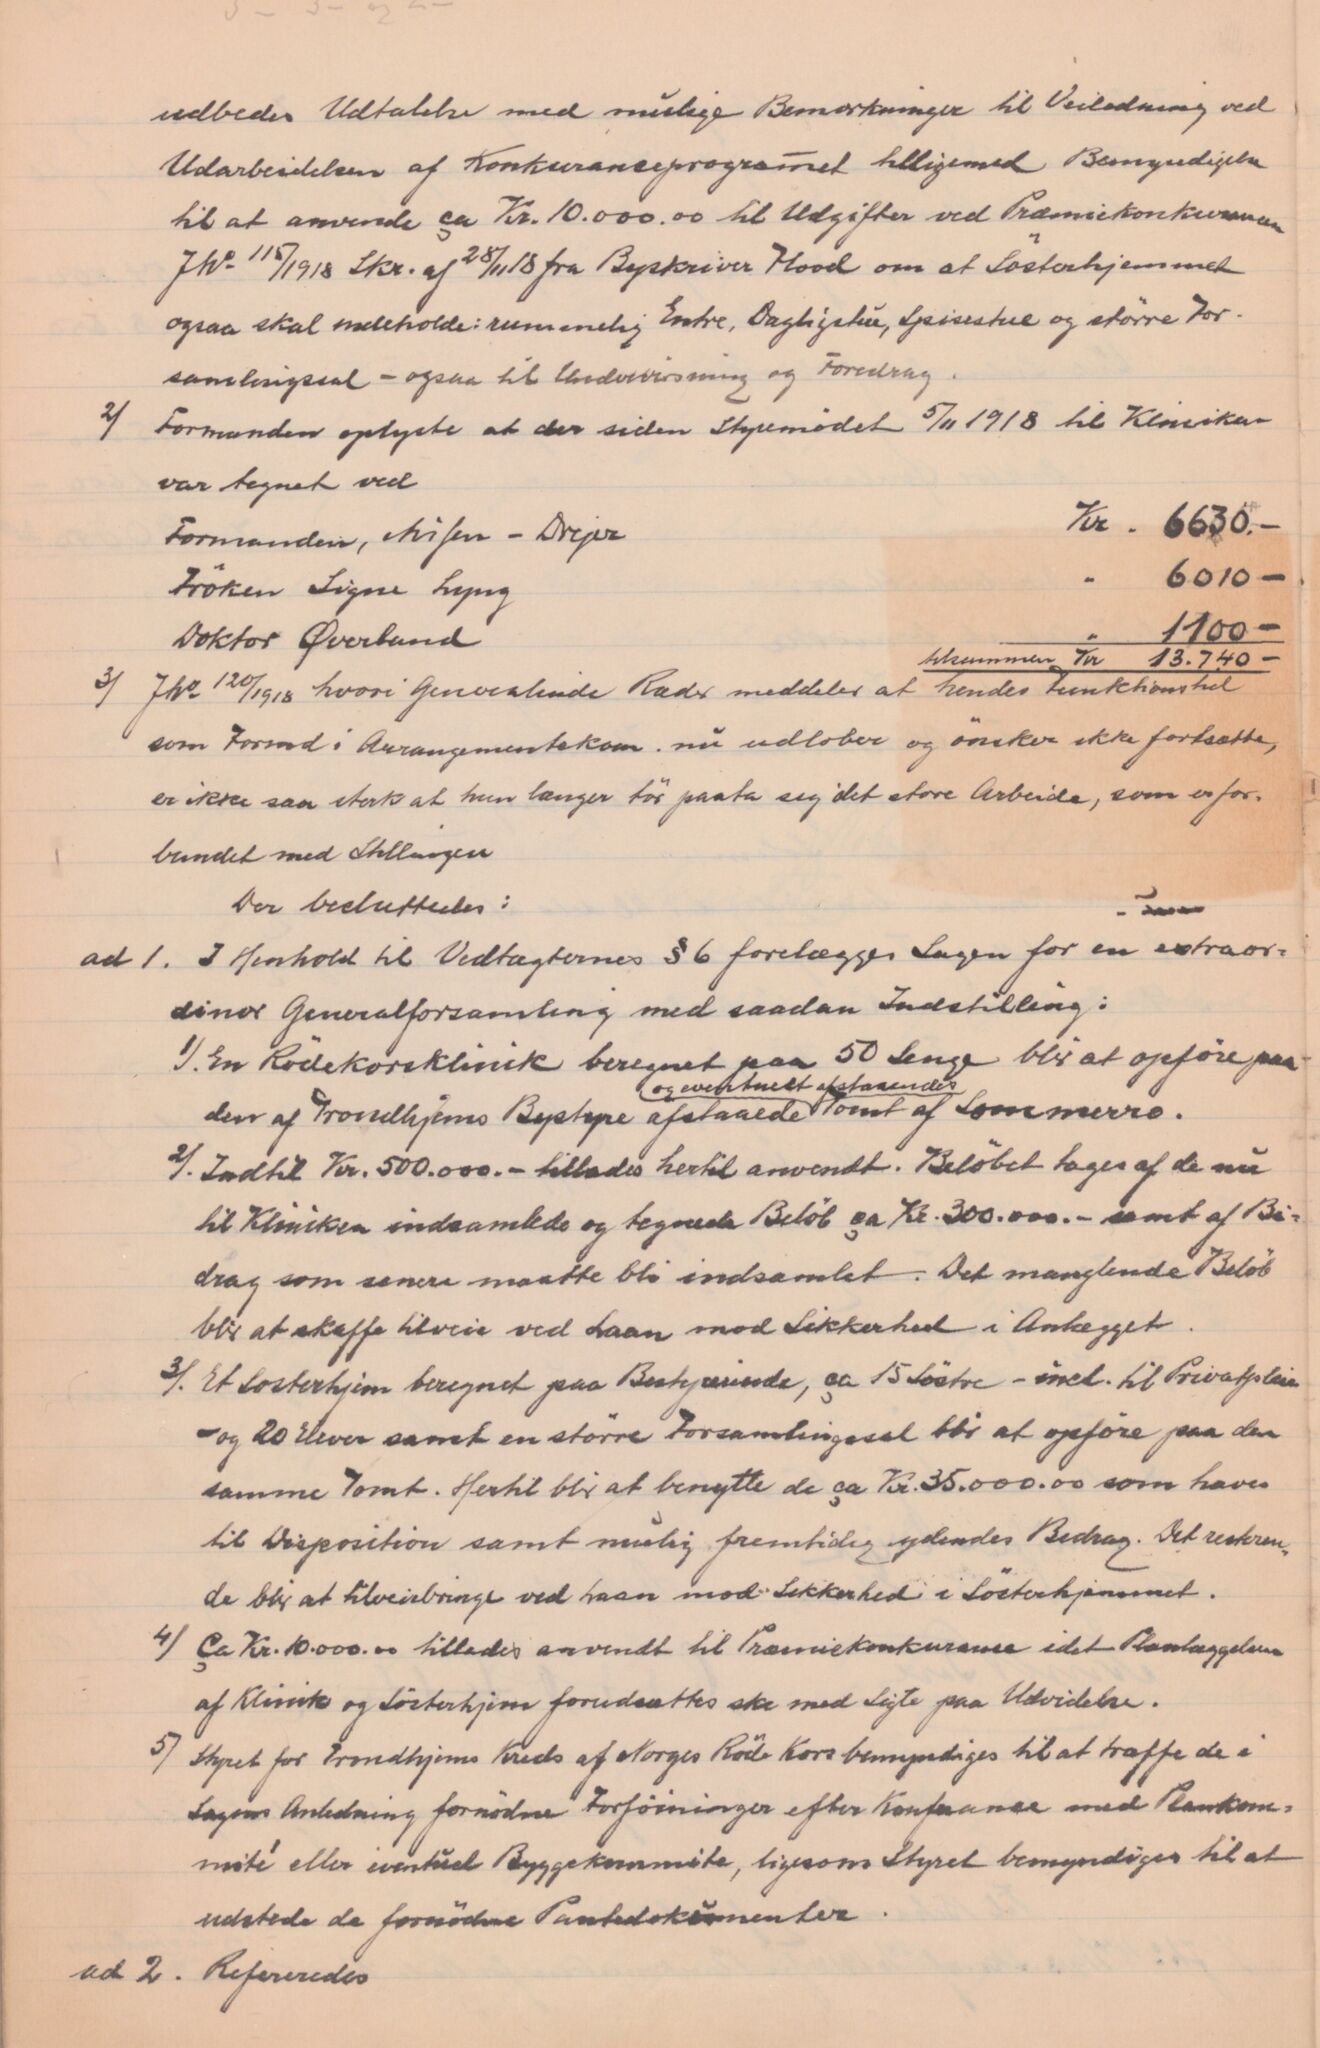 udbedes Udtalelse med mulige Bemærkninger til Veiledning ved
Udarbeidelsen af Konkuranceprogram̅et tilligemed Bemyndigelse
til at anvende ca Kr. 10.000.00 til Udgifter ved Præmiekonkurancen
JNo 118/1918 Skr. af 28/11 18 fra Byskriver Flood om at Søsterhjemmet
ogsaa skal indeholde: rummelig Entre, Dagligstue, Spisestue og större For-
samlingssal – ogsaa til Undervisning og Foredrag.
2/ Formanden oplyste at der siden Styremödet 5/11 1918 til Kliniken
var tegnet ved
Formanden, Nissen - Drejer Kr. 6630.–
Fröken Signe Lyng " 6010 –
Doktor Øverland " 1100 –
tilsammen Kr 13.740 –
3/ JNo 120/1918 hvori Generalinde Ræder meddeler at hendes Funktionstid
som Formd i Arrangementskom. nu udlöber og önsker ikke fortsætte,
er ikke saa sterk at hun længer tör paata sig det store Arbeide, som er for-
bundet med Stillingen
Der besluttedes:
ad 1. I Henhold til Vedtægternes § 6 forelægges Sagen for en extraor-
dinær Generalforsamling med saadan Indstilling:
1/. En Rödekorsklinik beregnet paa 50 Senge blir at opföre paa
og eventuelt afstaaendes
den af Trondhjems Bystyre afstaaede Tomt af Sommerro.
2/. Indtil Kr. 500.000.– tillades hertil anvendt. Belöbet tages af de nu
til Kliniken indsamlede og tegnede Belöb ca Kr. 300.000.– samt af Bi-
drag som senere maatte bli indsamlet. Det manglende Belöb
blir at skaffe tilveie ved Laan mod Sikkerhed i Anlægget.
3/. Et Søsterhjem beregnet paa Bestyrerinde, ca 15 Söstre – incl. til Privatpleie
– og 20 Elever samt en större Forsamlingssal blir at opföre paa den
samme Tomt. Hertil blir at benytte de ca Kr. 35.000.00 som haves
til Disposition samt mulig fremtidig ydendes Bedrag. Det resteren-
de blir at tilveiebringe ved Laan mod Sikkerhed i Sösterhjemmet.
4/ Ca Kr. 10.000.00 tillades anvendt til Præmiekonkurance idet Planlæggelsen
af Klinik og Sösterhjem forudsættes ske med Sigte paa Udvidelse.
5/ Styret for Trondhjems Kreds af Norges Röde Kors bemyndiges til at træffe de i
Sagens Anledning fornödne Forföininger efter Konferance med Plankom-
mité eller eventuel Byggekommite, ligesom Styret bemyndiges til at
udstede de fornödne Pantedokumenter.
ad 2. Refereredes